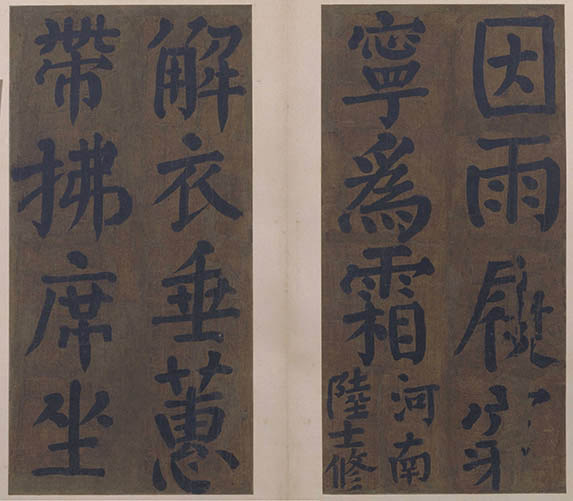 因雨履穿
寧為霜
河南
陸士修
解衣垂蕙
帶拂席坐